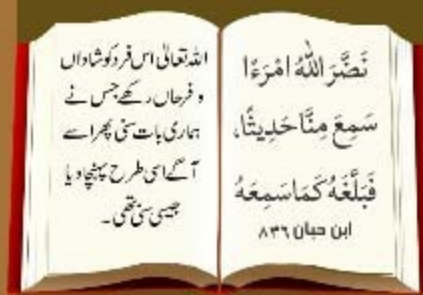 نَضَّرَ اللّٰهُ امْرَءًا
سَمِعَ مِنَّا حَدِيثًا،
فَبَلَّغَهُ كَمَا سَمِعَهُ
ابن حبان ٨٣٦
اللہ تعالیٰ اس فرد کو شاداں
و فرحاں رکھے جس نے
ہماری بات سنی پھر اسے
آگے اسی طرح پہنچا دیا
جیسی سنی تھی۔